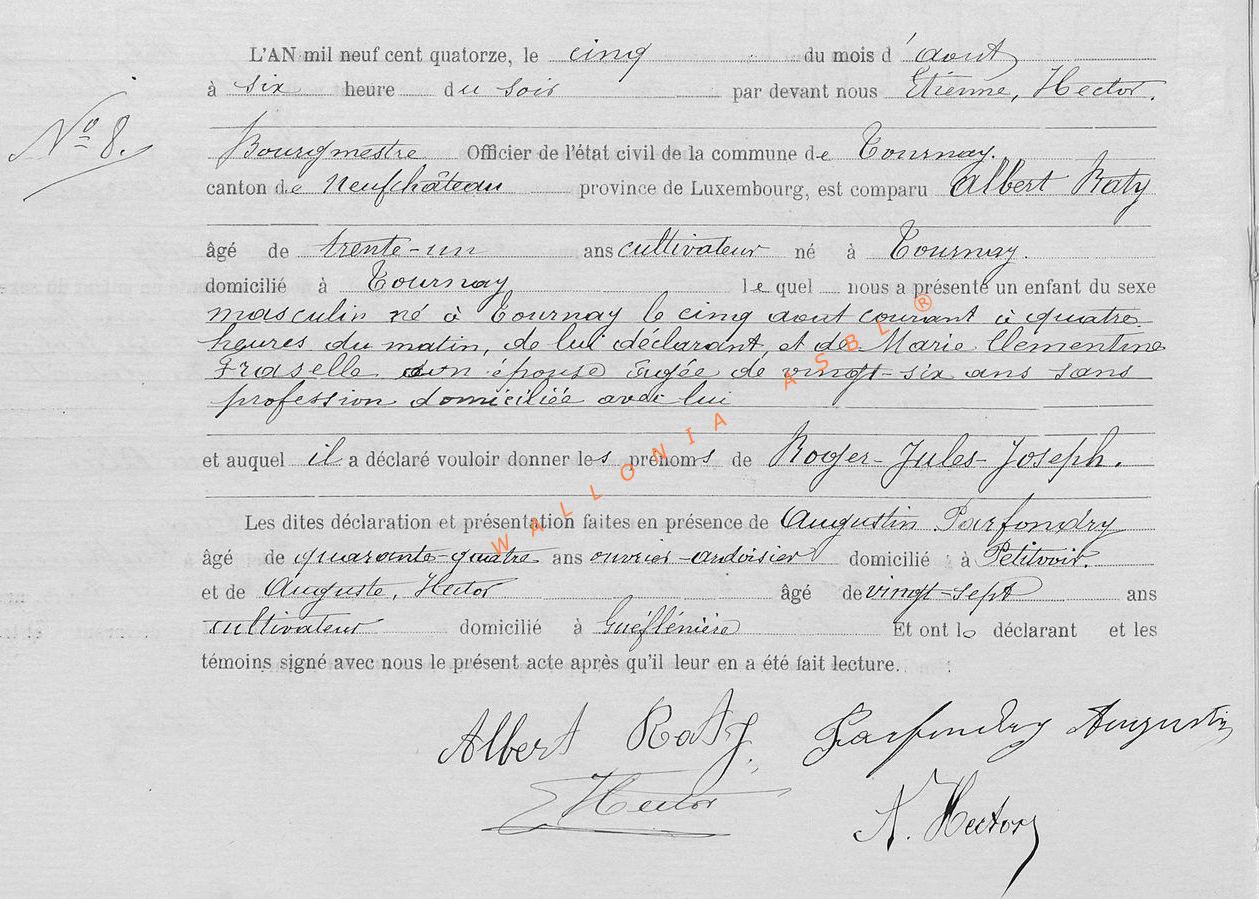 L'AN mil neuf cent quatorze, le cinq du mois d'aout
à six heure du soir par devant nous Etienne, Hector.
N° 8.
Bourgmestre Officier de l'état civil de la commune de Tournay.
canton de Neufchâteau province de Luxembourg, est comparu Albert Raty
âgé de trente-un ans cultivateur né à Tournay.
domicilié à Tournay lequel nous a présenté un enfant du sexe
masculin né à Tournay le cinq aout courant à quatre
heures du matin, de lui déclarant, et de Marie Clémentine
Fraselle son épouse âgée de vingt-six ans sans
profession domiciliée avec lui
et auquel il a déclaré vouloir donner les prénoms de Roger-Jules-Joseph.
Les dites déclaration et présentation faites en présence de Augustin Parfondry
âgé de quarante-quatre ans ouvrier-ardoisier domicilié à Petitvoir.
et de Auguste, Hector âgé de vingt-sept ans
cultivateur domicilié à Et ont le déclarant et les
témoins signé avec nous le présent acte après qu'il leur en a été fait lecture.
Albert Raty. Parfondry Augustin
E Hector
A. Hector
WALLONIA ASBL ®